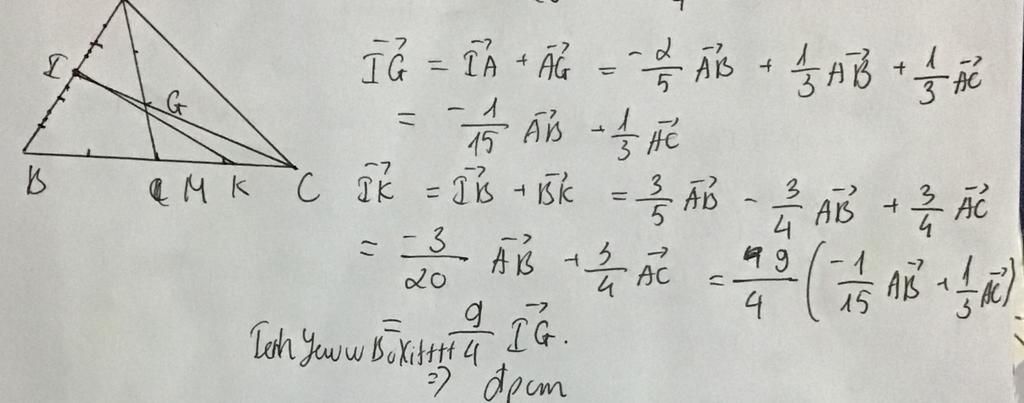 I
G
B M K C
\vec{IG} = \vec{IA} + \vec{AG} = -\frac{2}{5} \vec{AB} + \frac{1}{3} \vec{AB} + \frac{1}{3} \vec{AC}
= \frac{-1}{15} \vec{AB} + \frac{1}{3} \vec{AC}
\vec{IK} = \vec{IB} + \vec{BK} = \frac{3}{5} \vec{AB} - \frac{3}{4} \vec{AB} + \frac{3}{4} \vec{AC}
= \frac{-3}{20} \vec{AB} + \frac{3}{4} \vec{AC} = \frac{9}{4} \left( \frac{-1}{15} \vec{AB} + \frac{1}{3} \vec{AC} \right)
= \frac{9}{4} \vec{IG}.
=> đpcm